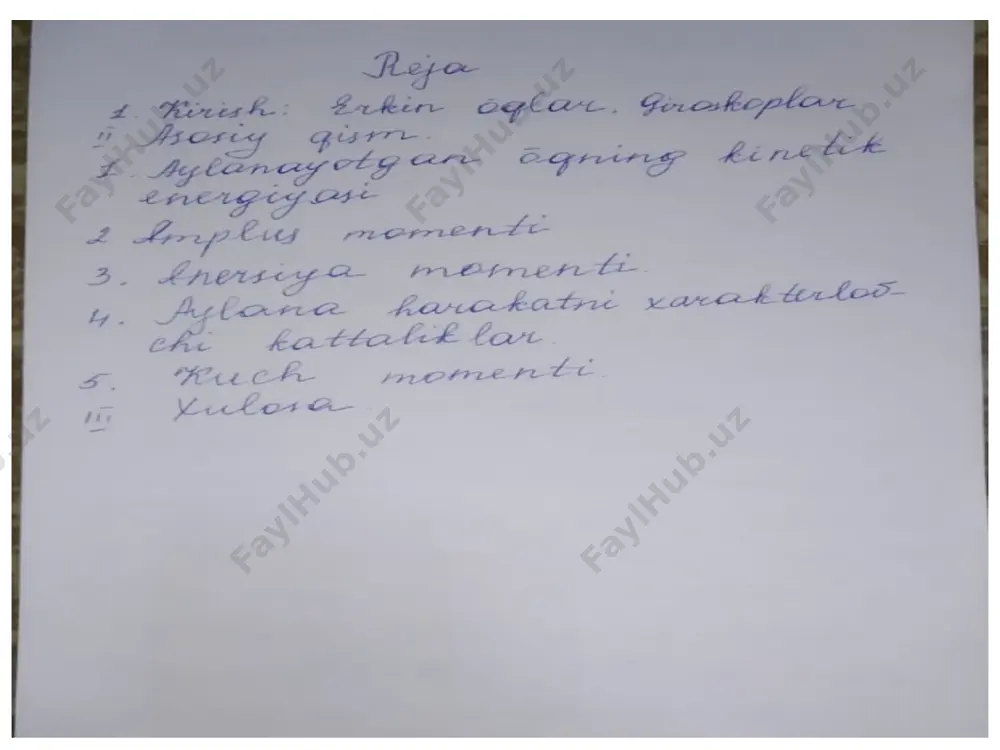 Reja
1. Kirish: Erkin õqlar. Giroskoplar
II Asosiy qism.
1. Aylanayotgan õqning kinetik
energiyasi
2 Implus momenti
3. Inersiya momenti.
4. Aylana harakatni xarakterlov-
chi kattaliklar.
5. Kuch momenti.
III Xulosa.
FaylHub.uz
FaylHub.uz
FaylHub.uz
b.uz
FaylHub.uz
FaylHub.uz